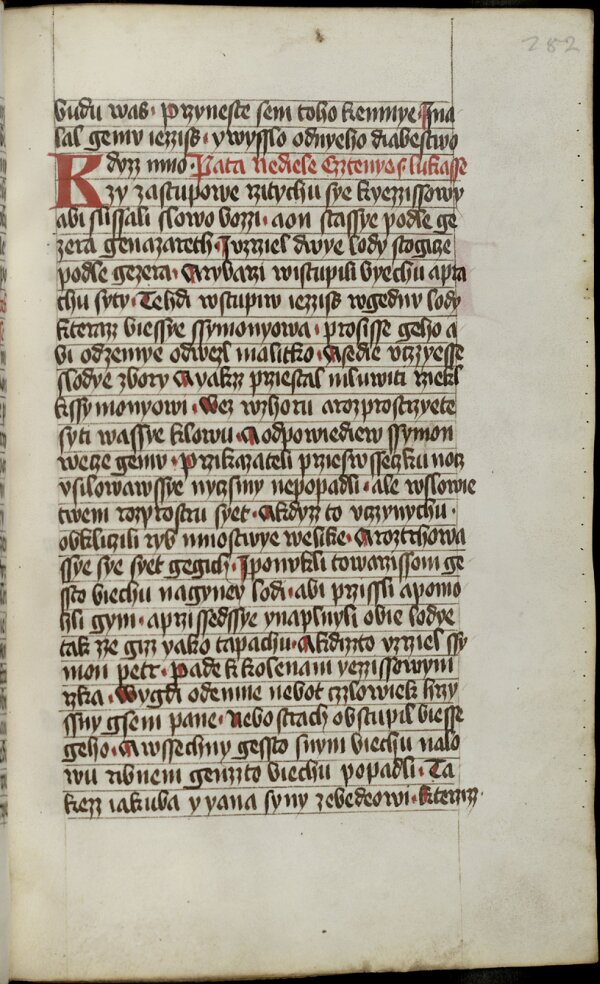 282
budu was · Przyneste sem toho kemnye · Ina
lal gemu iezziss · y wysslo odnyeho diabelstwo
Kdyzz mno · Pata nediele Cztenye s lukasse
zy zastupowe rzitychu sye kyezzissowy
abi slissali slowo bozzi · a on stassye podle ge
zera genazareth · I vzrziel dwye lody stogicze
podle gezera · A rybarzi wistupili byechu a pra
chu syty · Tehdi wstupiw iezziss wgednu lody
kterazz biessye ssymonyowa · prosisse geho a
bi odzemye odwezl malitko · A sedie vczyesse
slodye zbory · A yakzz przestal mluwiti rziekl
kssymonyowi · Wez wzhoru a rozprostrzyete
syti wassye klowu · A odpowiediew ssymon
wecze gemu · przikazateli przieswssiczku nocz
vsilowawssye nyczsmy nepopadli · ale wslowie
twem rozprostru syet · A kdyzz to vczynychu ·
obkliczili ryb mnostwye welike · A roztrhowa
ssye sye syet gegich · I ponukli towarzissom ge
ssto biechu nagyney lodi · abi przissli a pomo
hli gym · a przissedssye ynaplnyli obie lodye
tak zze gizz yako tapachu · A kdizzto vzrziel ssy
mon petr · Pade k kolenam yezzissowym
rzka · Wygdi odemne nebot czlowiek hrzy
ssny gsem pane · Nebo strach obstupil biesse
geho · A wssechny gessto snym biechu nalo
wu ribnem genzzto biechu popadli · Ta
kezz iakuba y yana syny zebedeowi · kterzizz ·